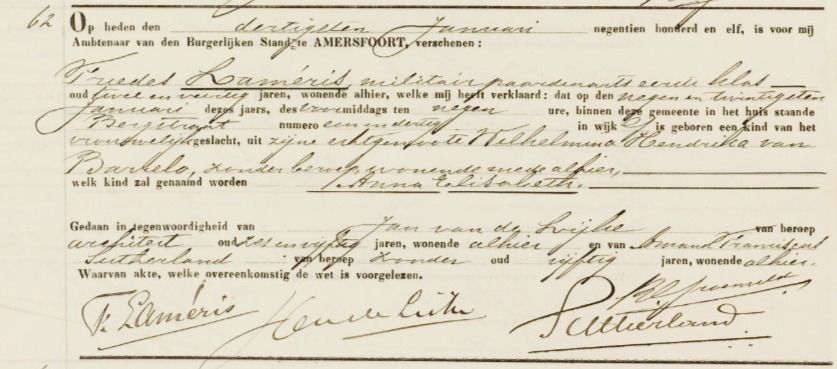 62
Op heden den dertigsten Januari negentien honderd en elf, is voor mij
Ambtenaar van den Burgerlijken Stand te AMERSFOORT, verschenen :
Laméris, militair paardenarts eerste klas
oud twee en veertig jaren, wonende alhier, welke mij heeft verklaard: dat op den negen en twintigsten
Januari dezes jaars, des voormiddags ten negen ure, binnen deze gemeente in het huis staande
Bergstraat numero een en dertig in wijk is geboren een kind van het
vrouwelijk geslacht, uit zijne echtgenoote Wilhelmina Hendrika van
Barselo, zonder beroep, wonende mede alhier,
welk kind zal genaamd worden Anna Elisabeth.
Gedaan in tegenwoordigheid van Jan van de van beroep
architect oud zes en vijftig jaren, wonende alhier en van Amand Franciscus
Sutherland van beroep zonder oud vijftig jaren, wonende alhier.
Waarvan akte, welke overeenkomstig de wet is voorgelezen.
F. Laméris
Sutherland.